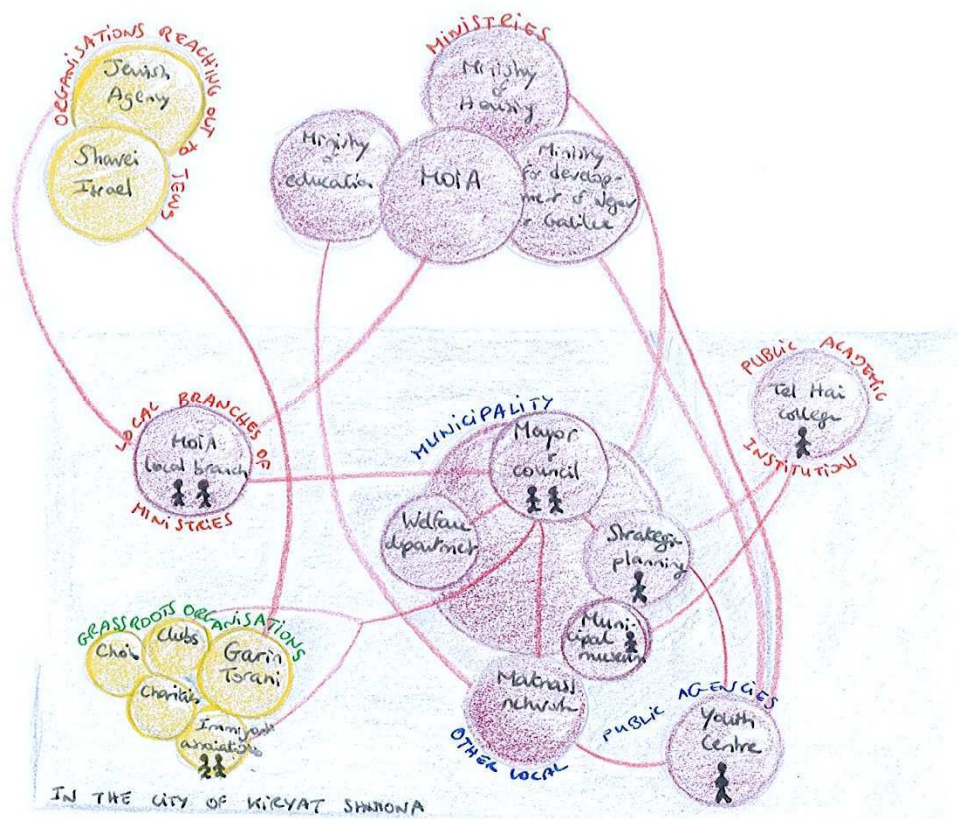 ORGANISATIONS REACHING OUT to JEWS
Jewish
Agency
Shavei
Israel
MINISTRIES
Ministry
of
Housing
Ministry
of
education
MOIA
Ministry
for develop-
ment of Negev
& Galilee
LOCAL BRANCHES OF
MOIA
local branch
MINISTRIES
MUNICIPALITY
Mayor
&
council
Welfare
department
Strategic
planning
Muni-
cipal
museum
PUBLIC ACADEMIC
Tel Hai
college
INSTITUTIONS
GRASSROOTS ORGANISATIONS
Choir
Clubs
Garin
Torani
Charities
Immigrant
associations
Matnass
network
OTHER LOCAL
PUBLIC AGENCIES
Youth
Centre
IN THE CITY OF KIRYAT SHMONA